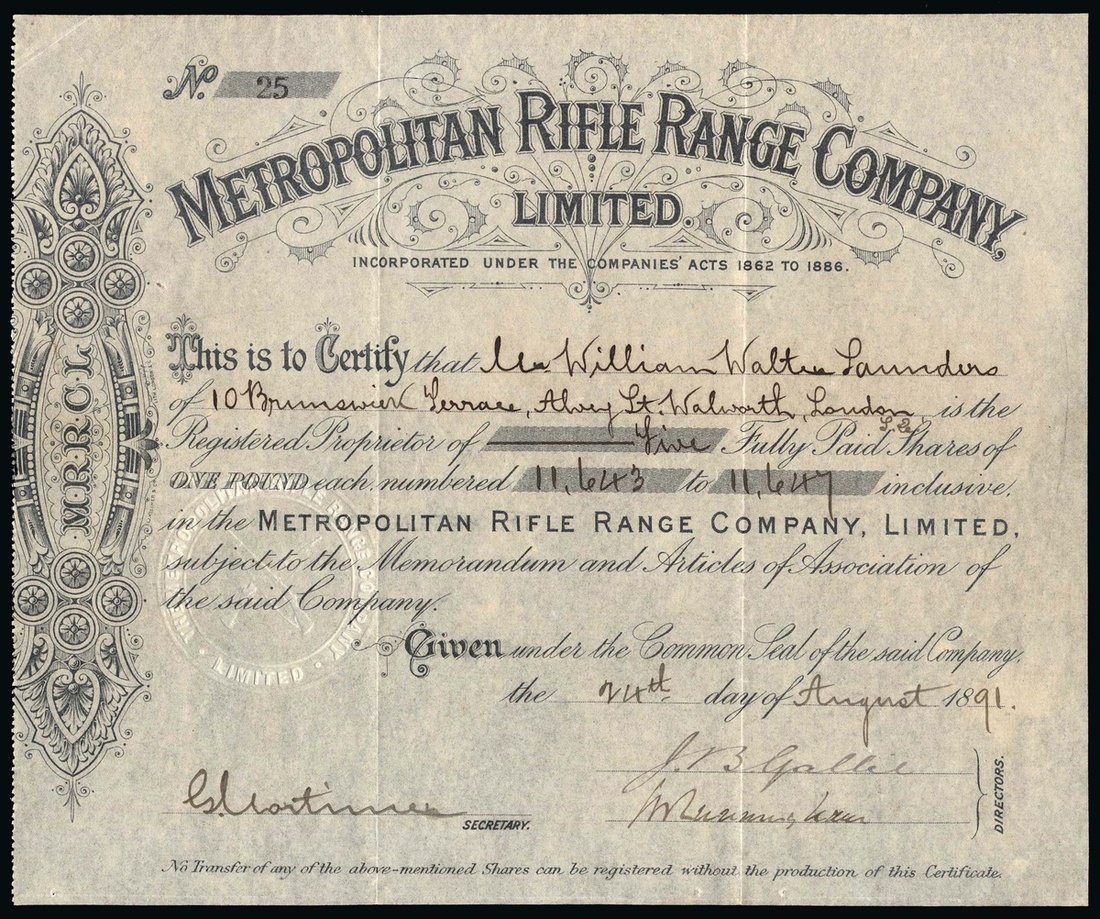 No. 25
METROPOLITAN RIFLE RANGE COMPANY,
LIMITED.
INCORPORATED UNDER THE COMPANIES' ACTS 1862 TO 1886.
M.R.R.C.L.
This is to Certify that Mr William Walter Saunders
of 10 Brunswick Terrace, Alvey St. Walworth, London, is the
Registered Proprietor of Five Fully Paid Shares of
ONE POUND each, numbered 11,643 to 11,647 inclusive,
in the METROPOLITAN RIFLE RANGE COMPANY, LIMITED,
subject to the Memorandum and Articles of Association of
the said Company.
THE METROPOLITAN RIFLE RANGE COMPANY LIMITED
Given under the Common Seal of the said Company,
the 24th day of August 1891.
J. B. Gallie
Mortimer
SECRETARY.
DIRECTORS.
No Transfer of any of the above-mentioned Shares can be registered without the production of this Certificate.